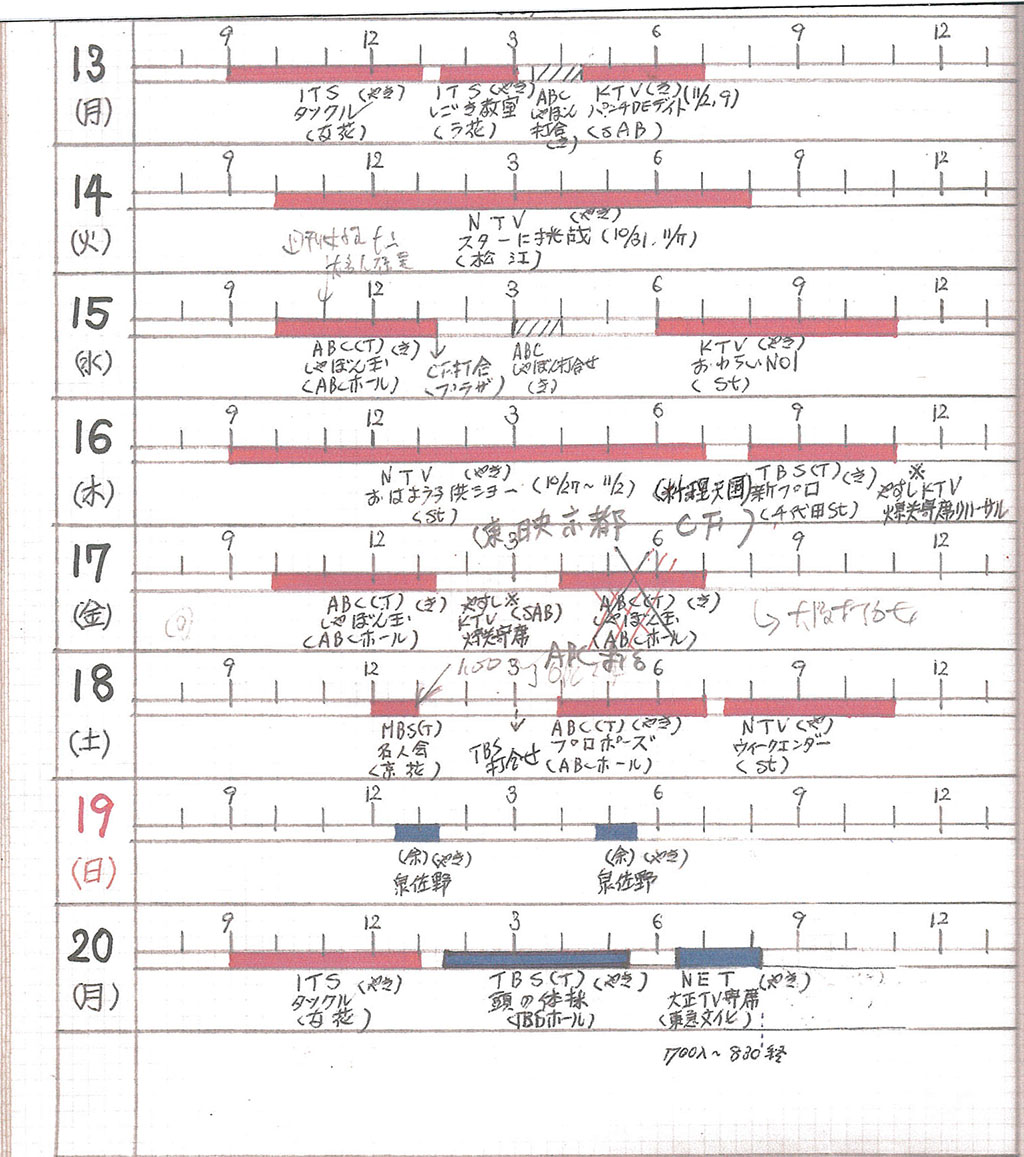 13
(月)
9 12 3 6 9 12
ITS (やき)
タックル
(なんば花)
ITS (やき)
しごき教室
(うめだ花)
ABC
しゃぼん
打合
(き)
KTV (き) (11/2, 9)
パンチDEデイト
(SAB)
14
(火)
9 12 3 6 9 12
NTV (やき)
スターに挑戦 (10/31, 11/7)
(松江)
15
(水)
9 12 3 6 9 12
ABC(T) (き)
しゃぼん玉
(ABCホール)
CF打合
(プラザ)
ABC
しゃぼん打合せ
(き)
KTV (やき)
おわらいNO1
(St)
16
(木)
9 12 3 6 9 12
NTV (やき)
おはよう子供ショー (10/27〜11/2)
(St)
(料理天国)
TBS(T) (き)
新プロ
(千代田St)
※
やすしKTV
爆笑寄席リハーサル
(東映京都 CF)
17
(金)
9 12 3 6 9 12
ABC(T) (き)
しゃぼん玉
(ABCホール)
やすし※
KTV (SAB)
爆笑寄席
ABC(T) (き)
しゃぼん玉
(ABCホール)
18
(土)
9 12 3 6 9 12
1.50
ABC
MBS(T)
名人会
(京花)
TBS
打合せ
ABC(T) (やき)
プロポーズ
(ABCホール)
NTV (き)
ウィークエンダー
(St)
19
(日)
9 12 3 6 9 12
(余) (やき)
泉佐野
(余) (やき)
泉佐野
20
(月)
9 12 3 6 9 12
ITS (やき)
タックル
TBS(T) (やき)
頭の体操
(TBSホール)
NET (やき)
大正TV寄席
(東急文化)
1700入〜830終